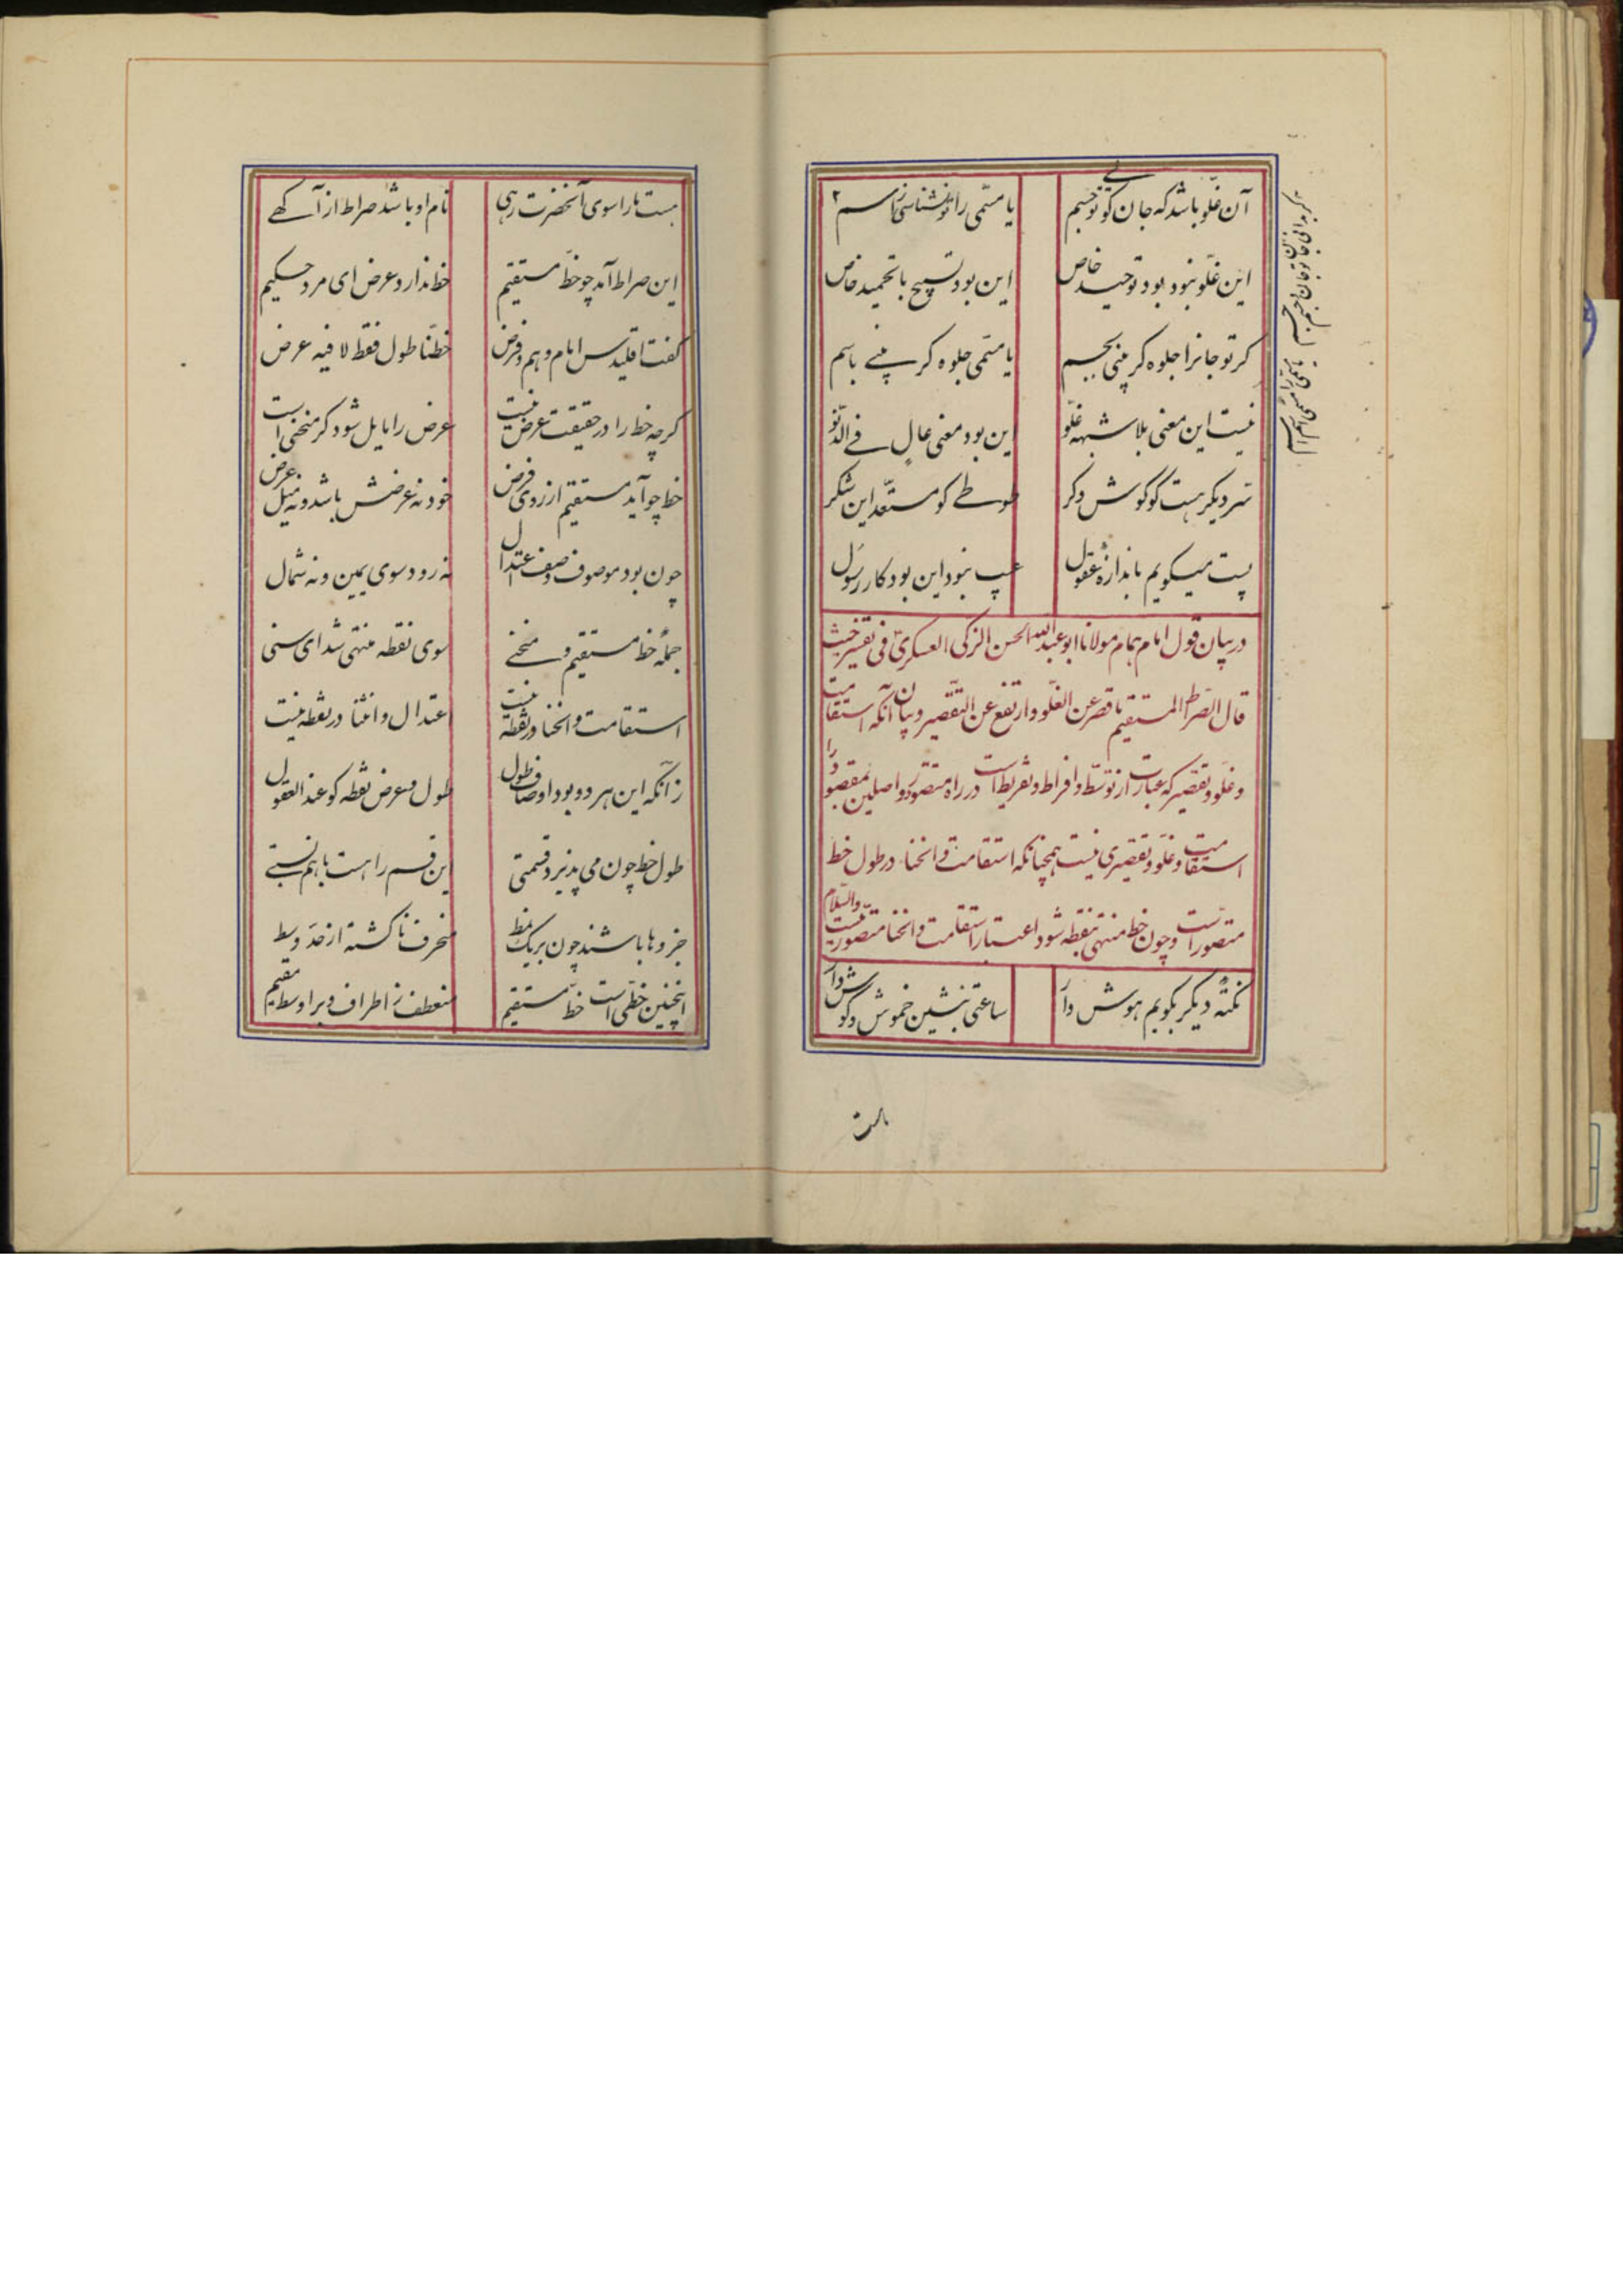 آن غلو باشد که جان گوئی تو جسم
یا مسمی را تو نشناسی ز اسم
این غلو نبود بود توحید خاص
این بود تسبیح با تحمید خاص
کر تو جانرا جلوه کر بینی بجسم
یا مسمی جلوه کر بینے باسم
نیست این معنی بلا شبهه غلو
این بود معنی عالٍ فے الدّنو
سر دیکر هست کو کوش دکر
طوطے کو مستعد این شکر
پست میکویم باندازه عقول
عیب نبود این بود کار رسول
در بیان قول امام همام مولانا ابو عبدالله الحسن الزکی العسکری فی تفسیر حیث
قال الصراط المستقیم ما قصر عن الغلو و ارتفع عن التقصیر و بیان آنکه استقامت
و غلو و تقصیر که عبارت از توسط و افراط و تفریط است در راه متصور و واصلین بمقصود را
استقامت و غلو و تقصیری نیست همچنانکه استقامت و انحنا در طول خط
متصور است و چون خط منتهی بنقطه شود اعتبار استقامت و انحنا متصور نیست والسلام
نکتهٔ دیکر بکویم هوش دار
ساعتی بنشین خموش و کوش دار
هست ما را سوی آنحضرت رهی
نام او باشد صراط از آکهے
این صراط آمد چو خط مستقیم
خط ندارد عرض ای مرد حکیم
کفت اقلیدس امام وهم و فرض
خطنا طول فقط لا فیه عرض
کرچه خط را در حقیقت عرض نیست
عرض را مایل شود کر منحنی است
خط چو آید مستقیم از روی فرض
خود نه عرضش باشد و نه میل عرض
چون بود موصوف وصف اعتدال
نه رود سوی یمین و نه شمال
جملهٔ خط مستقیم و منحنے
سوی نقطه منتهی شد ای سنی
استقامت و انحنا در نقطه نیست
اعتدال و انثنا در نقطه نیست
زآنکه این هر دو بود اوصاف طول
طول و عرض نقطه کو عند العقول
طول خط چون می پذیرد قسمتی
این قسم را هست با هم نسبتے
جزوها باشند چون بر یک نمط
منحرف ناکشته از حد وسط
اینچنین خطی است خط مستقیم
منعطف ز اطراف و بر اوسط مقیم